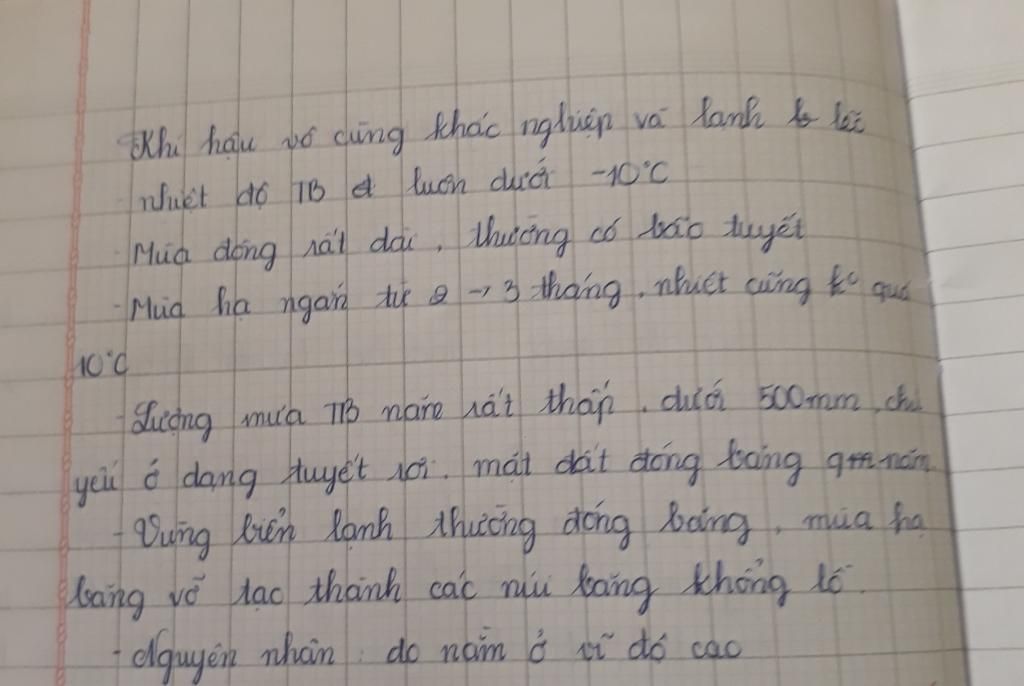 Khí hậu vô cùng khắc nghiệp và lạnh lẽo
- nhiệt độ TB luôn dưới -10°C
- Mùa đông rất dài, thường có bão tuyết
- Mùa hạ ngắn từ 2 → 3 tháng, nhiệt cũng k° quá
10°C
- Lượng mưa TB năm rất thấp, dưới 500mm, chủ
yếu ở dạng tuyết rơi. mặt đất đóng băng năm
- Vùng biển lạnh thường đóng băng, mùa hạ
băng vỡ tạc thành các núi băng khổng lồ.
- Nguyên nhân: do nằm ở vĩ độ cao